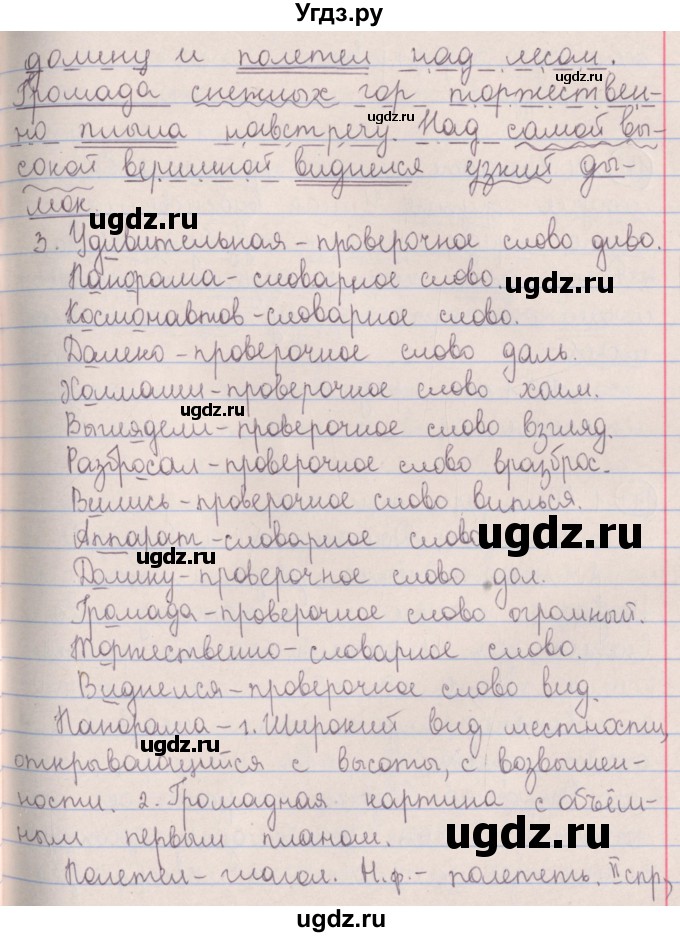 Угдз.ру
долину и полетел над лесом.
ugdz.ru
Громада снежных гор торжествен-
ugdz.ru
но плыла навстречу. Над самой вы-
сокой вершиной виднелся узкий ды-
мок.
ugdz.ru
3. Удивительная – проверочное слово диво.
Панорама – словарное слово.
ugdz.ru
Космонавтов – словарное слово.
Далеко – проверочное слово даль.
Холмами – проверочное слово холм.
ugdz.ru
Выглядели – проверочное слово взгляд.
Разбросал – проверочное слово вразброс.
Вились – проверочное слово виться.
Аппарат – словарное слово
ugdz.ru
ugdz.ru
Долину – проверочное слово дол.
Громада – проверочное слово огромный.
Торжественно – словарное слово.
Виднелся – проверочное слово вид.
Панорама – 1. Широкий вид местности,
ugdz.ru
открывающийся с высоты, с возвышен-
ности. 2. Громадная картина с объём-
ным первым планом.
ugdz.ru
Полетел – глагол. Н.ф. – полететь. II спр,
ugdz.ru